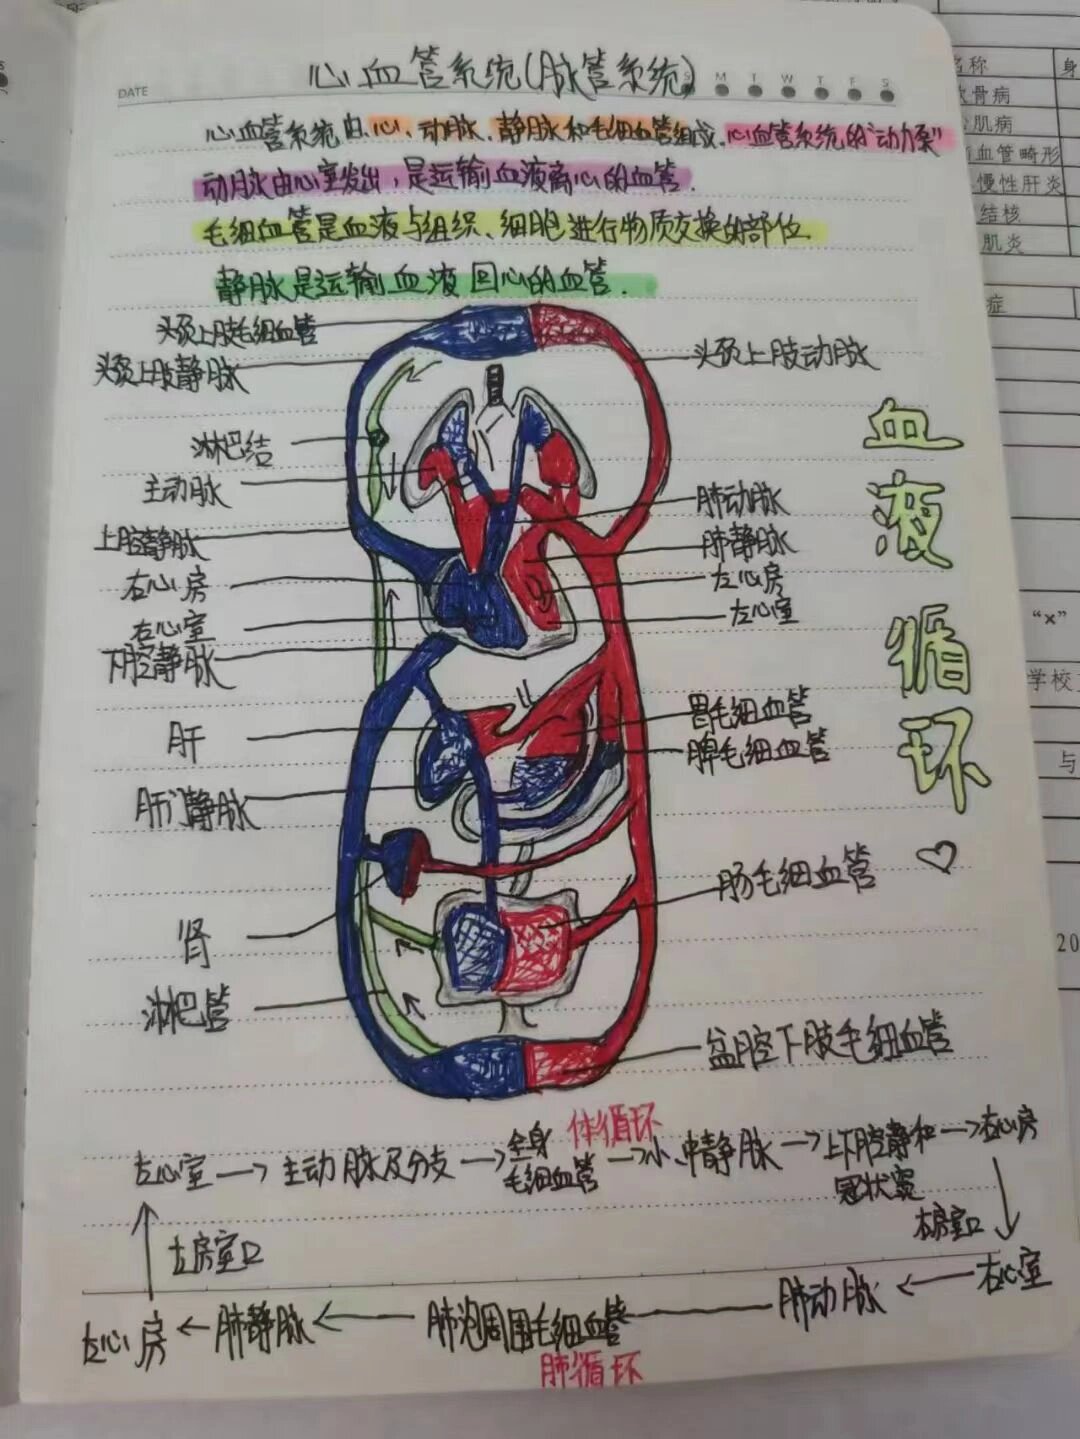 心血管系统(脉管系统)
DATE
S M T W T F S
心血管系统由心、动脉、静脉和毛细血管组成.心血管系统的"动力泵"
动脉由心室发出，是运输血液离心的血管.
毛细血管是血液与组织、细胞进行物质交换的部位.
静脉是运输血液回心的血管.
头颈上肢毛细血管
头颈上肢静脉
头颈上肢动脉
淋巴结
主动脉
肺动脉
上腔静脉
肺静脉
右心房
左心房
右心室
左心室
下腔静脉
血液循环
肝
胃毛细血管
脾毛细血管
肝门静脉
肠毛细血管
肾
淋巴管
盆腔下肢毛细血管
体循环
左心室→主动脉及分支→全身毛细血管→小、中静脉→上下腔静和冠状窦→右心房
左房室口
右房室口
左心房←肺静脉←肺泡周围毛细血管—肺动脉←右心室
肺循环
名称
身
软骨病
心肌病
血管畸形
慢性肝炎
结核
肌炎
症
"×"
学校
与
20